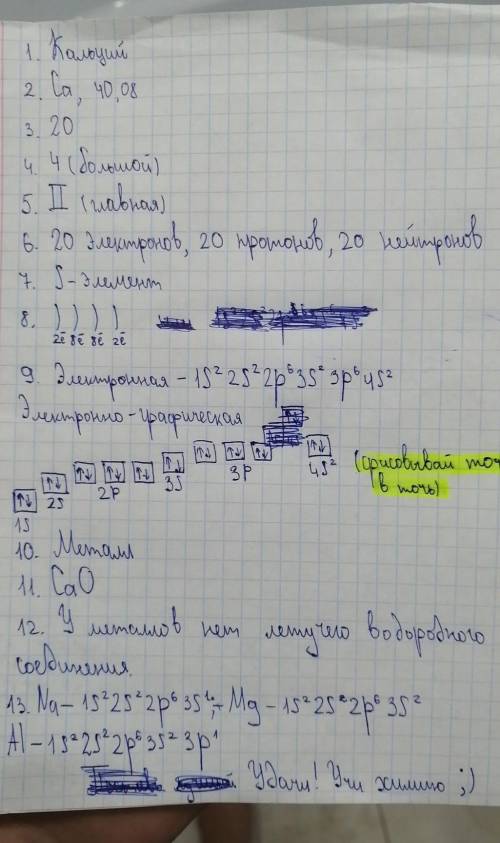 1. Кальций
2. Ca, 40,08
3. 20
4. 4 (большой)
5. II (главная)
6. 20 электронов, 20 протонов, 20 нейтронов
7. S-элемент
8. ) ) ) )
2ē 8ē 8ē 2ē
9. Электронная - 1S² 2S² 2p⁶ 3S² 3p⁶ 4S²
Электронно-графическая
↑↓ ↑↓ ↑↓ ↑↓ ↑↓ ↑↓ ↑↓ ↑↓ ↑↓ ↑↓
1S 2S 2P 3S 3P 4S²
(срисовывай точ
в точь)
10. Металл
11. CaO
12. У металлов нет летучего водоробного
соединения.
13. Na - 1S² 2S² 2p⁶ 3S¹; Mg - 1S² 2S² 2p⁶ 3S²
Al - 1S² 2S² 2p⁶ 3S² 3p¹
Удачи! Учи химию ;)